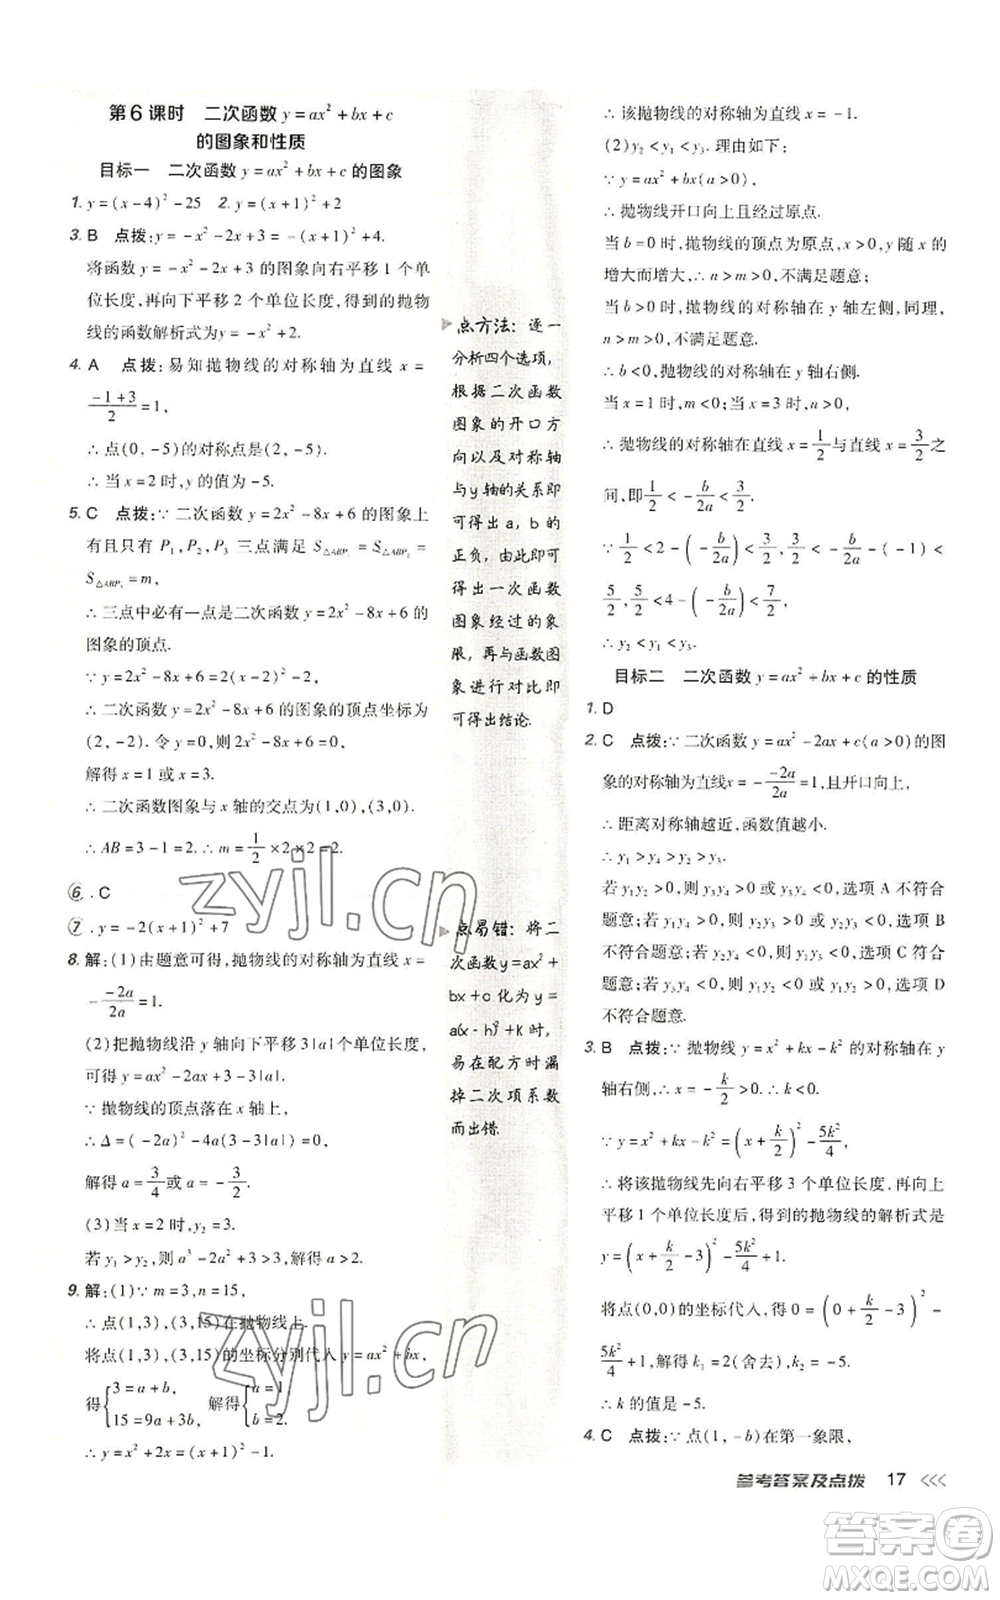 第6课时 二次函数 y=ax²+bx+c
的图象和性质
目标一 二次函数 y=ax²+bx+c 的图象
1. y=(x-4)²-25 2. y=(x+1)²+2
3. B 点拨:y=-x²-2x+3=-(x+1)²+4.
将函数 y=-x²-2x+3 的图象向右平移 1 个单
位长度,再向下平移 2 个单位长度,得到的抛物
线的函数解析式为y=-x²+2.
4. A 点拨:易知抛物线的对称轴为直线 x=
(-1+3)/2=1,
∴点(0,-5)的对称点是(2,-5).
∴当 x=2 时,y 的值为-5.
5. C 点拨:∵二次函数 y=2x²-8x+6 的图象上
有且只有 P₁,P₂,P₃ 三点满足 S△ABP₁=S△ABP₂=
S△ABP₃=m,
∴三点中必有一点是二次函数 y=2x²-8x+6
图象的顶点.
∵y=2x²-8x+6=2(x-2)²-2,
∴二次函数 y=2x²-8x+6 的图象的顶点坐标为
(2,-2).令 y=0,则 2x²-8x+6=0,
解得 x=1 或 x=3.
∴二次函数图象与 x 轴的交点为(1,0),(3,0).
∴AB=3-1=2.∴m=1/2×2×2=2.
⑥. C
⑦. y=-2(x+1)²+7
8. 解:(1)由题意可得,抛物线的对称轴为直线 x=
-(-2a)/2a=1.
(2)把抛物线沿 y 轴向下平移 3|a|个单位长度,
可得 y=ax²-2ax+3-3|a|.
∵抛物线的顶点落在 x 轴上,
∴Δ=(-2a)²-4a(3-3|a|)=0,
解得 a=3/4 或 a=-3/2.
(3)当 x=2 时,y₂=3.
若 y₁>y₂,则 a³-2a²+3>3,解得 a>2.
9. 解:(1)∵m=3,n=15,
∴点(1,3),(3,15)在抛物线上.
将点(1,3),(3,15)的坐标分别代入 y=ax²+bx,
得{3=a+b, 15=9a+3b, 解得{a=1, b=2.
∴y=x²+2x=(x+1)²-1.
点方法:逐一
分析四个选项,
根据二次函数
图象的开口方
向以及对称轴
与y轴的关系即
可得出a,b的
正负,由此即可
得出一次函数
图象经过的象
限,再与函数图
象进行对比即
可得出结论.
点易错:将二
次函数y=ax²+
bx+c化为y=
a(x-h)²+k时,
易在配方时漏
掉二次项系数
而出错.
∴该抛物线的对称轴为直线 x=-1.
(2)y₂<y₁<y₃.理由如下:
∵y=ax²+bx(a>0),
∴抛物线开口向上且经过原点.
当 b=0 时,抛物线的顶点为原点,y 随 x 的
增大而增大,∴n>m>0,不满足题意;
当 b>0 时,抛物线的对称轴在 y 轴左侧,同理,
n>m>0,不满足题意.
∴b<0,抛物线的对称轴在 y 轴右侧.
当 x=1 时,m<0;当 x=3 时,n>0,
∴抛物线的对称轴在直线 x=1/2与直线 x=3/2之
间,即1/2<-b/2a<3/2.
∵1/2<2-(-b/2a)<3/2,3/2<-b/2a-(-1)<
5/2,5/2<4-(-b/2a)<7/2,
∴y₂<y₁<y₃.
目标二 二次函数 y=ax²+bx+c 的性质
1. D
2. C 点拨:∵二次函数 y=ax²-2ax+c(a>0)的图
象的对称轴为直线x=-(-2a)/2a=1,且开口向上,
∴距离对称轴越近,函数值越小.
∴y₁>y₄>y₂>y₃.
若 y₁y₂>0,则 y₃y₄>0 或 y₃y₄<0,选项 A 不符合
题意;若 y₁y₄>0,则 y₂y₃>0 或 y₂y₃<0,选项 B
不符合题意;若 y₂y₄<0,则 y₁y₃<0,选项 C 符合
题意;若 y₃y₄<0,则 y₁y₂>0 或 y₁y₂<0,选项 D
不符合题意.
3. B 点拨:∵抛物线 y=x²+kx-k² 的对称轴在 y
轴右侧,∴x=-k/2>0.∴k<0.
∵y=x²+kx-k²=(x+k/2)²-5k²/4,
∴将该抛物线先向右平移 3 个单位长度,再向上
平移 1 个单位长度后,得到的抛物线的解析式是
y=(x+k/2-3)²-5k²/4+1.
将点(0,0)的坐标代入,得 0=(0+k/2-3)²-
5k²/4+1,解得 k₁=1(舍去),k₂=-5.
∴k 的值是-5.
4. C 点拨:∵点(1,-b)在第一象限,
参考答案及点拨 17
zyjl.cn
zyjl.cn
答案圈
MXQE.COM